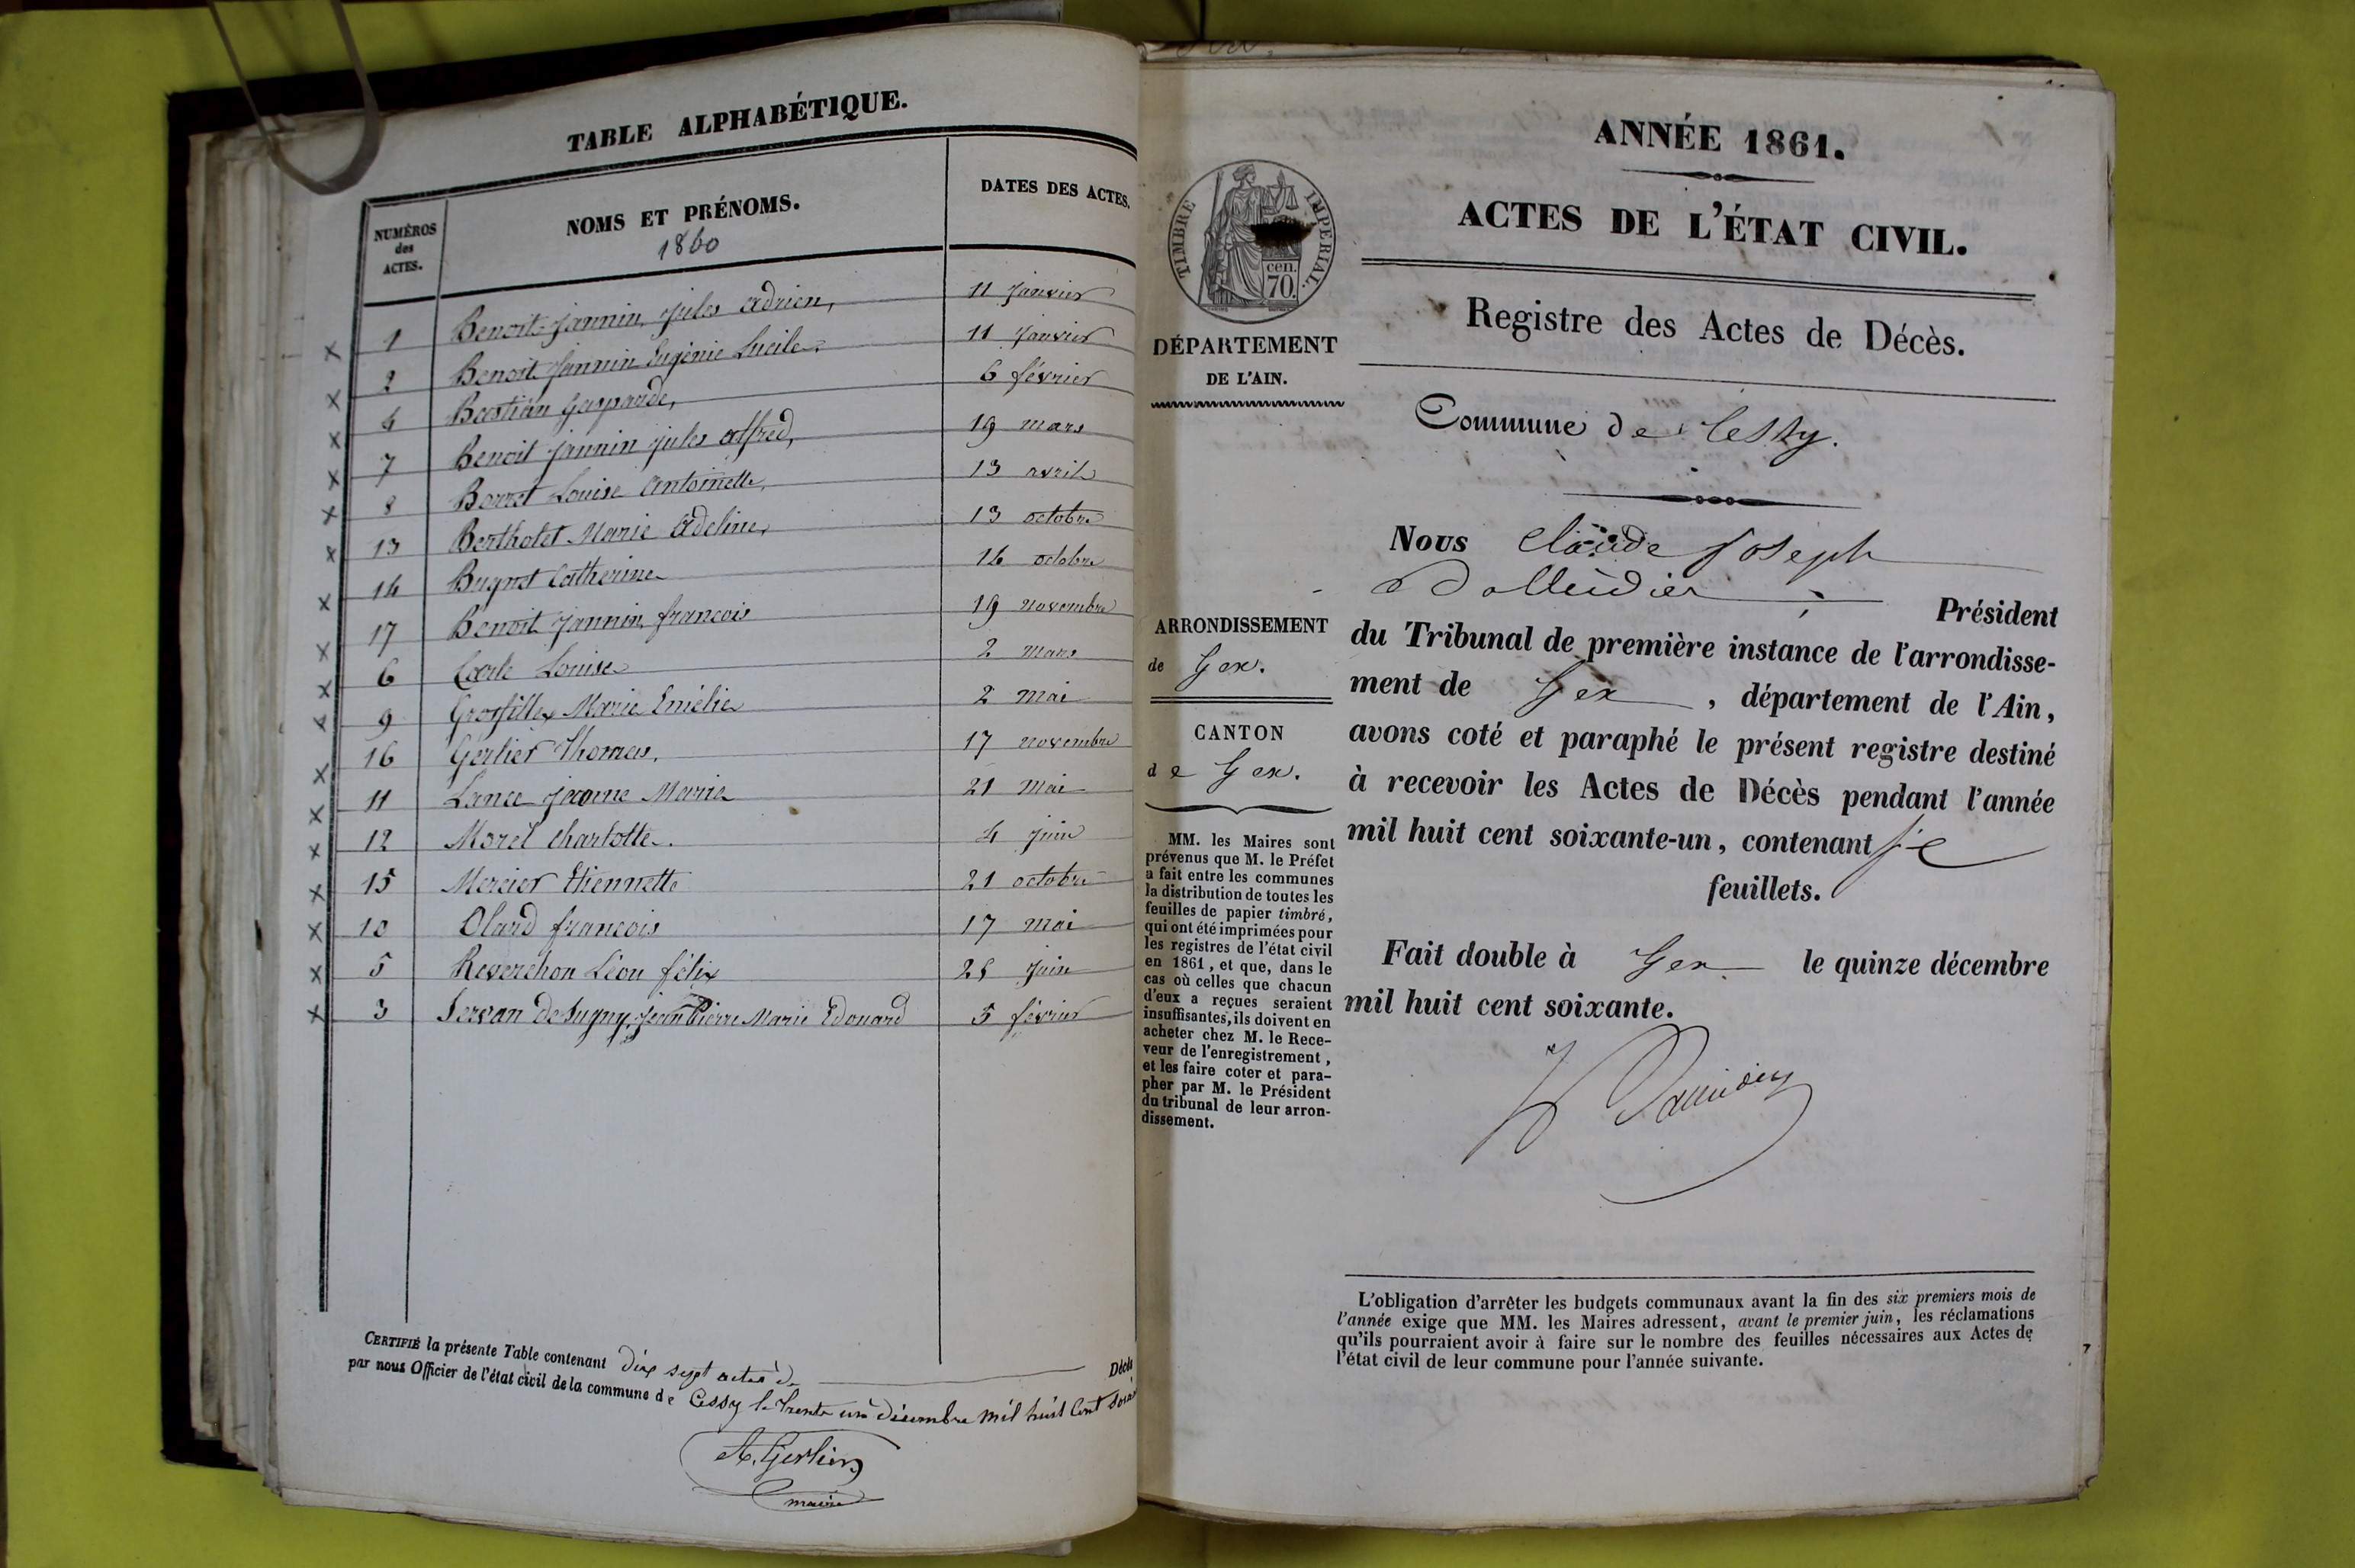 TABLE ALPHABÉTIQUE.
NUMÉROS des ACTES. NOMS ET PRÉNOMS. 1860 DATES DES ACTES.
1 Benoit-Jannin Jules Adrien, 11 Janvier
2 Benoit Jannin Eugénie Lucile. 11 Janvier
4 Bastian Gasparde, 6 février
7 Benoit Jannin Jules Alfred, 19 mars
8 Borret Louise Antoinette, 13 avril
13 Berthotet Marie Adeline, 13 octobre
14 Bugnet Catherine 16 octobre
17 Benoit Jannin françois 19 novembre
6 Carle Louise 2 mars
9 Grosfillex Marie Emélie 2 mai
16 Gerlier Thomas. 17 novembre
11 Lance Jeanne Marie 21 mai
12 Morel Charlotte. 4 juin
15 Mercier Etiennette 21 octobre
10 Olard françois 17 mai
5 Reverchon Léon félix 25 juin
3 Servan de Sugny, Jean Pierre Marie Edouard 5 février
CERTIFIÉ la présente Table contenant dix sept actes de Décès
par nous Officier de l'état civil de la commune de Cessy le trente un décembre mil huit cent
A. Gerlier
maire
ANNÉE 1861.
ACTES DE L'ÉTAT CIVIL.
TIMBRE IMPÉRIAL.
cen.
70.
DÉPARTEMENT
DE L'AIN.
Registre des Actes de Décès.
Commune de Cessy.
Nous Claude Joseph
Président
du Tribunal de première instance de l'arrondisse-
ment de Gex, département de l'Ain,
avons coté et paraphé le présent registre destiné
à recevoir les Actes de Décès pendant l'année
mil huit cent soixante-un, contenant
feuillets.
Fait double à Gex le quinze décembre
mil huit cent soixante.
ARRONDISSEMENT
de Gex.
CANTON
de Gex.
MM. les Maires sont
prévenus que M. le Préfet
a fait entre les communes
la distribution de toutes les
feuilles de papier timbré,
qui ont été imprimées pour
les registres de l'état civil
en 1861, et que, dans le
cas où celles que chacun
d'eux a reçues seraient
insuffisantes, ils doivent en
acheter chez M. le Rece-
veur de l'enregistrement,
et les faire coter et para-
pher par M. le Président
du tribunal de leur arron-
dissement.
L'obligation d'arrêter les budgets communaux avant la fin des six premiers mois de
l'année exige que MM. les Maires adressent, avant le premier juin, les réclamations
qu'ils pourraient avoir à faire sur le nombre des feuilles nécessaires aux Actes de
l'état civil de leur commune pour l'année suivante.
7